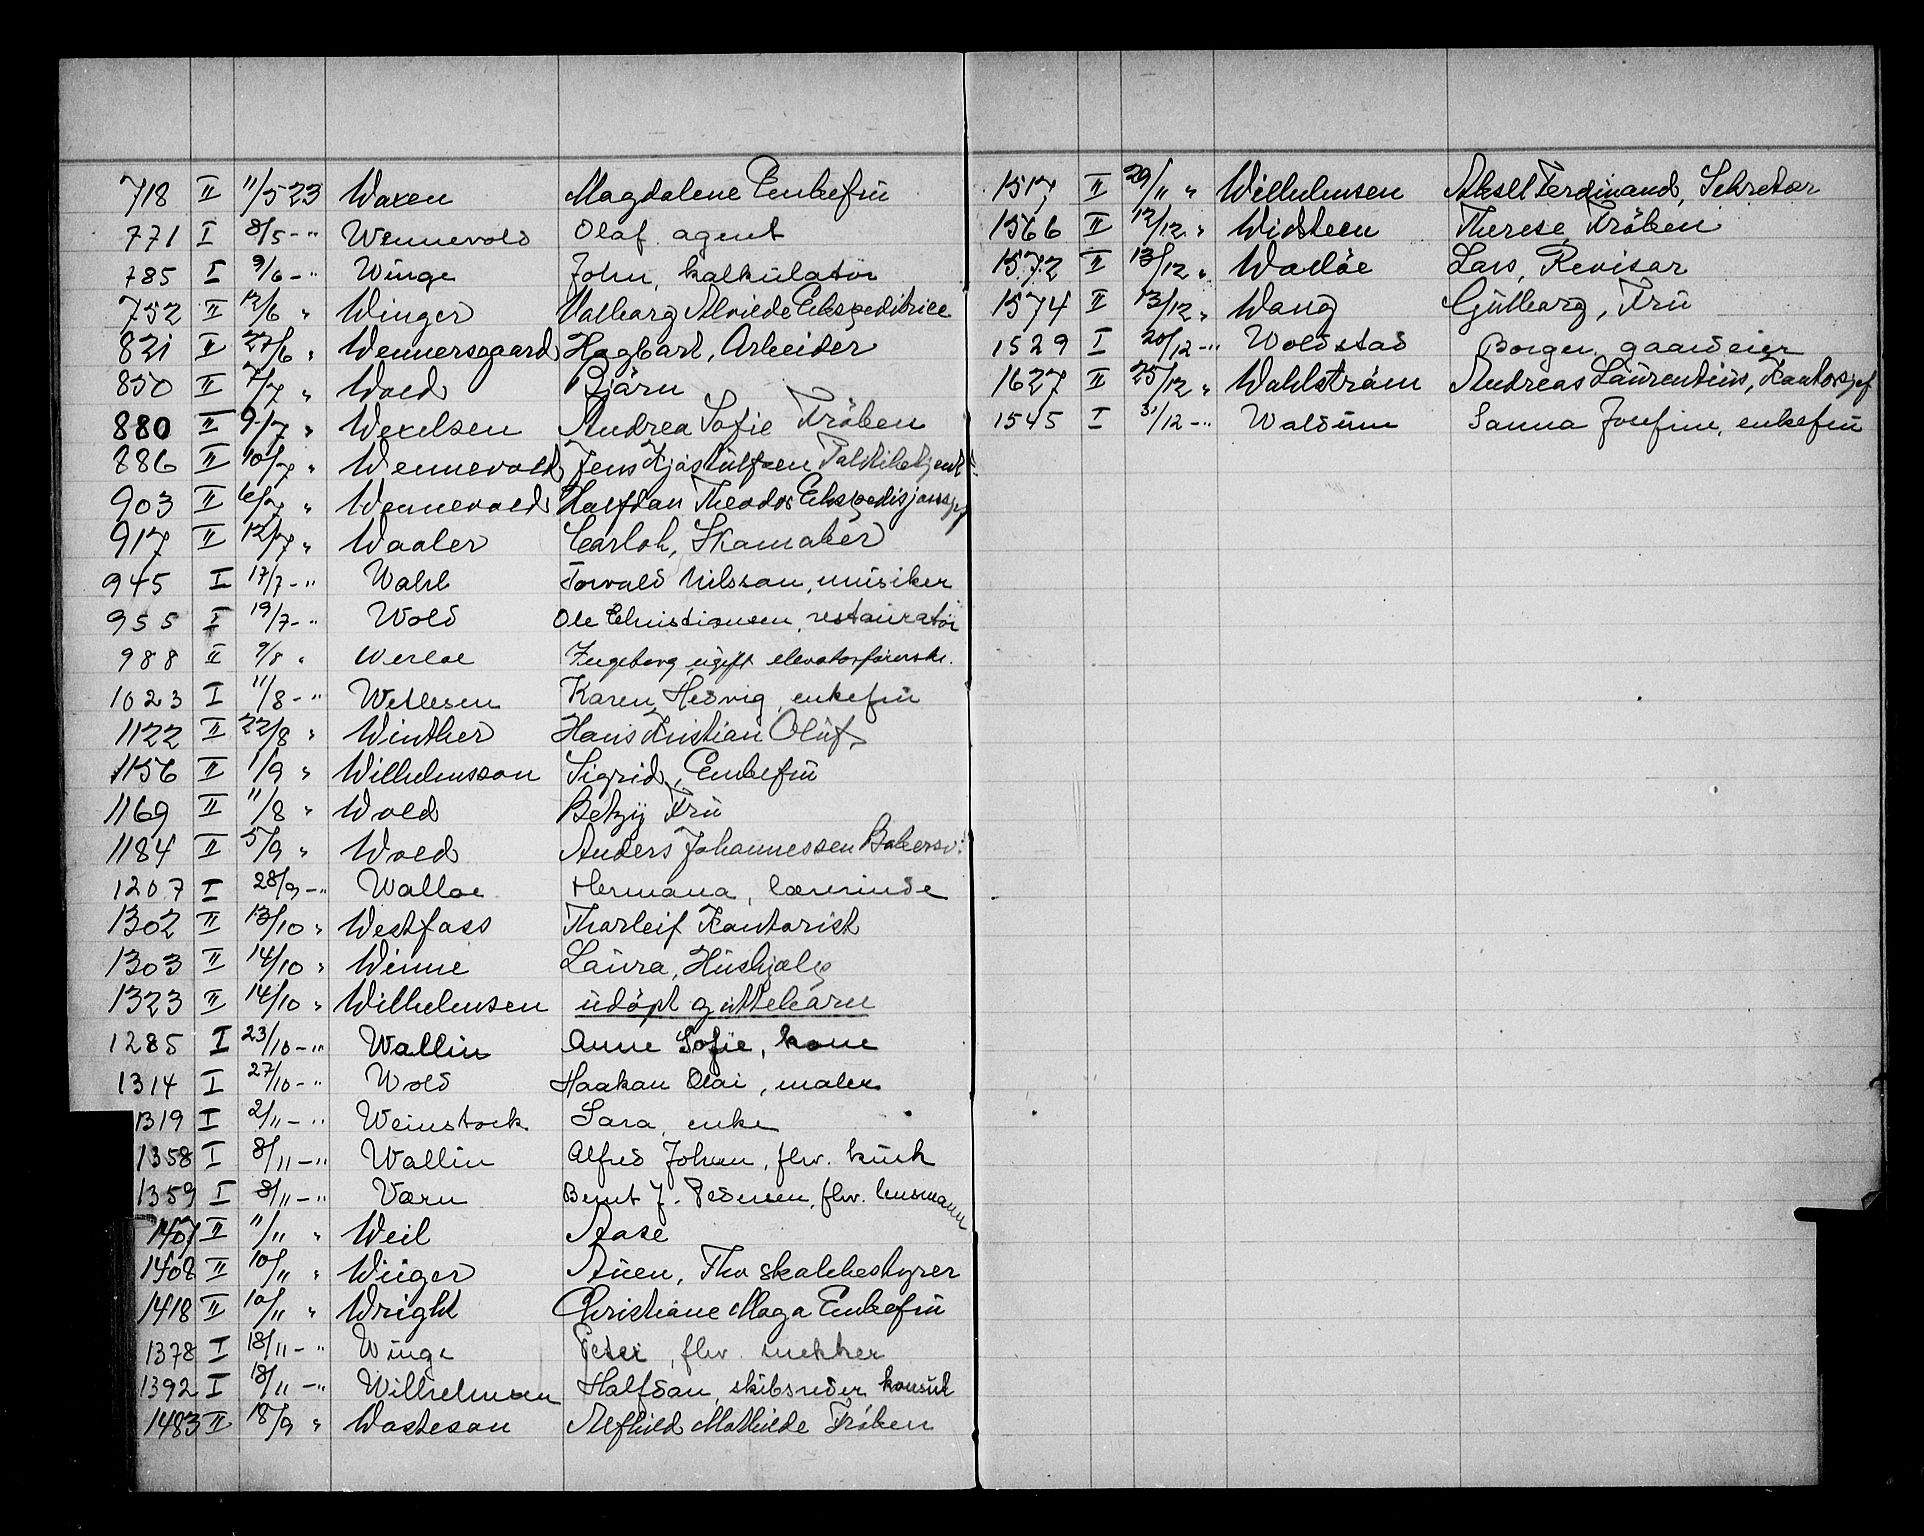 718 II 11/5 23 Waxen Magdalene Enkefrü
771 I 8/5 - " Wennevold Olaf agent
785 I 9/6 - " Winge John, kalkülatör
752 II 12/6 " Winger Valborg Alvilde Ekspeditrice
821 II 27/6 " Wennersgaard Hagbart, Arbeider
850 II 7/7 " Wold Björn
880 II 9/7 " Wexelsen Andrea Sofie Fröken
886 II 10/7 " Wennevold Jens
903 II 6/7 " Wennevold Halfdan Theodor Ekspedisjonssjef
917 II 12/7 " Waaler Carl oh, Skomaker
945 I 17/7 - " Wahl Torvald Nilsson, müsiker
955 I 19/7 - " Wold Ole Christiansen, restauratör
988 II 9/8 " Werloe Ingeborg ügift elevatorförerske.
1023 I 11/8 - " Wetlesen Karen Hedvig, enkefrü
1122 II 22/8 " Winther Hans Kristian Olüf
1156 II 1/9 " Wilhelmsson Sigrid, Enkefrü
1169 II 11/8 " Wold Betzy Frü
1184 II 5/9 " Wold Anders Johannessen Bakersv:
1207 I 28/9 - " Walloe Hermana, lærerinde
1302 II 13/10 " Westfoss Thorleif Kontorist
1303 II 14/10 " Winne Laura, Hüshjelp
1323 II 14/10 " Wilhelmsen üdöpt guttebarn
1285 I 23/10 - " Wallin Anne Sofie, kone
1314 I 27/10 - " Wold Haakon Olai, maler
1319 I 2/11 - " Weinstock Sara, enke
1358 I 8/11 - " Wallin Alfred Johan, fhv. kusk
1359 I 8/11 - " Værn Bernt J. Pedersen, fhv. lensmann
1407 II 11/11 " Weil Aase
1408 II 10/11 " Wüger Auen, Fhv skolebestyrer
1418 II 10/11 " Wright Christiane Maga Enkefrü
1378 I 18/11 - " Winge Peter, fhv. snekker
1392 I 18/11 - " Wilhelmsen Halfdan, skibsreder konsul
1483 II 18/9 " Wasteson Alfhild Mathilde Fröken
1517 II 29/11 " Wilhelmsen Aksel Ferdinand, Sekretær
1566 II 12/12 " Widsteen Therese, Fröken
1572 II 13/12 " Wadöe Lars, Revisor
1574 II 13/12 " Wang Gülborg, Frü
1529 I 20/12 - " Woldstad Borger, gaardeier
1627 II 25/12 " Wahlström Andreas Laurentius, Kontorsjef
1545 I 31/12 - " Waldum Sanna Josefine, enkefrü